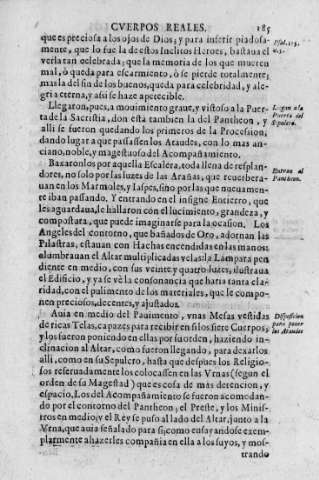 CVERPOS REALES. 185
que es preciosa a los ojos de Dios; y para inserir piadosa-
mente, que lo fue la de estos Inclitos Heroes, bastaua el
verla tan celebrada; que la memoria de los que mueren
mal, ò queda para escarmiento, ò se pierde totalmente;
mas la del fin de los buenos, queda para celebridad, y ale-
gria eterna, y assi se haze apetecible.
Psal. 115.
Llegaron, pues, a mouimiento graue, y vistoso a la Puer-
ta de la Sacristia, don está tambien la del Pantheon, y
alli se fueron quedando los primeros de la Procession,
dando lugar a que passassen los Ataudes, con lo mas an-
ciano, noble, y magestuoso del Acompañamiento.
Llegan a la
Puerta del
Sepulcro.
Baxaronlos por aquella Escalera, toda llena de resplan-
dores, no solo por las luzes de las Arañas, que reuerbera-
uan en los Marmoles, y Iaspes, sino por las que nueuamen-
te iban passando. Y entrando en el insigne Entierro, que
les aguardaua, le hallaron con el lucimiento, grandeza, y
compostura, que puede imaginarse para la ocasion. Los
Angeles del contorno, que bañados de Oro, adornan las
Pilastras, estauan con Hachas encendidas en las manos:
alumbrauan el Altar multiplicadas velas: la Lampara pen
diente en medio, con sus veinte y quatro luzes, ilustraua
el Edificio, y ya se vè la consonancia que haria tanta cla-
ridad, con el pulimento de los materiales, que le compo-
nen preciosos, decentes, y ajustados.
Entran al
Pantheon.
Auia en medio del Pauimento, vnas Mesas vestidas
de ricas Telas, capazes para recibir en si los siete Cuerpos,
y los fueron poniendo en ellas por su orden, haziendo in-
clinacion al Altar, como fueron llegando, para dexarlos
alli, como en su Sepulcro, hasta que despues los Religio-
sos reseruadamente los colocassen en las Vrnas (segun el
orden de su Magestad) que es cosa de mas detencion, y
espacio. Los del Acompañamiento se fueron acomodan-
do por el contorno del Pantheon, el Preste, y los Minis-
tros en medio; y el Rey se puso al lado del Altar, junto a la
Vrna, que auia señalado para si; como ensayandose exem-
plarmente a hazerles compañia en ella a los suyos, y mos-
trando
Disposicion
para poner
los Ataudes